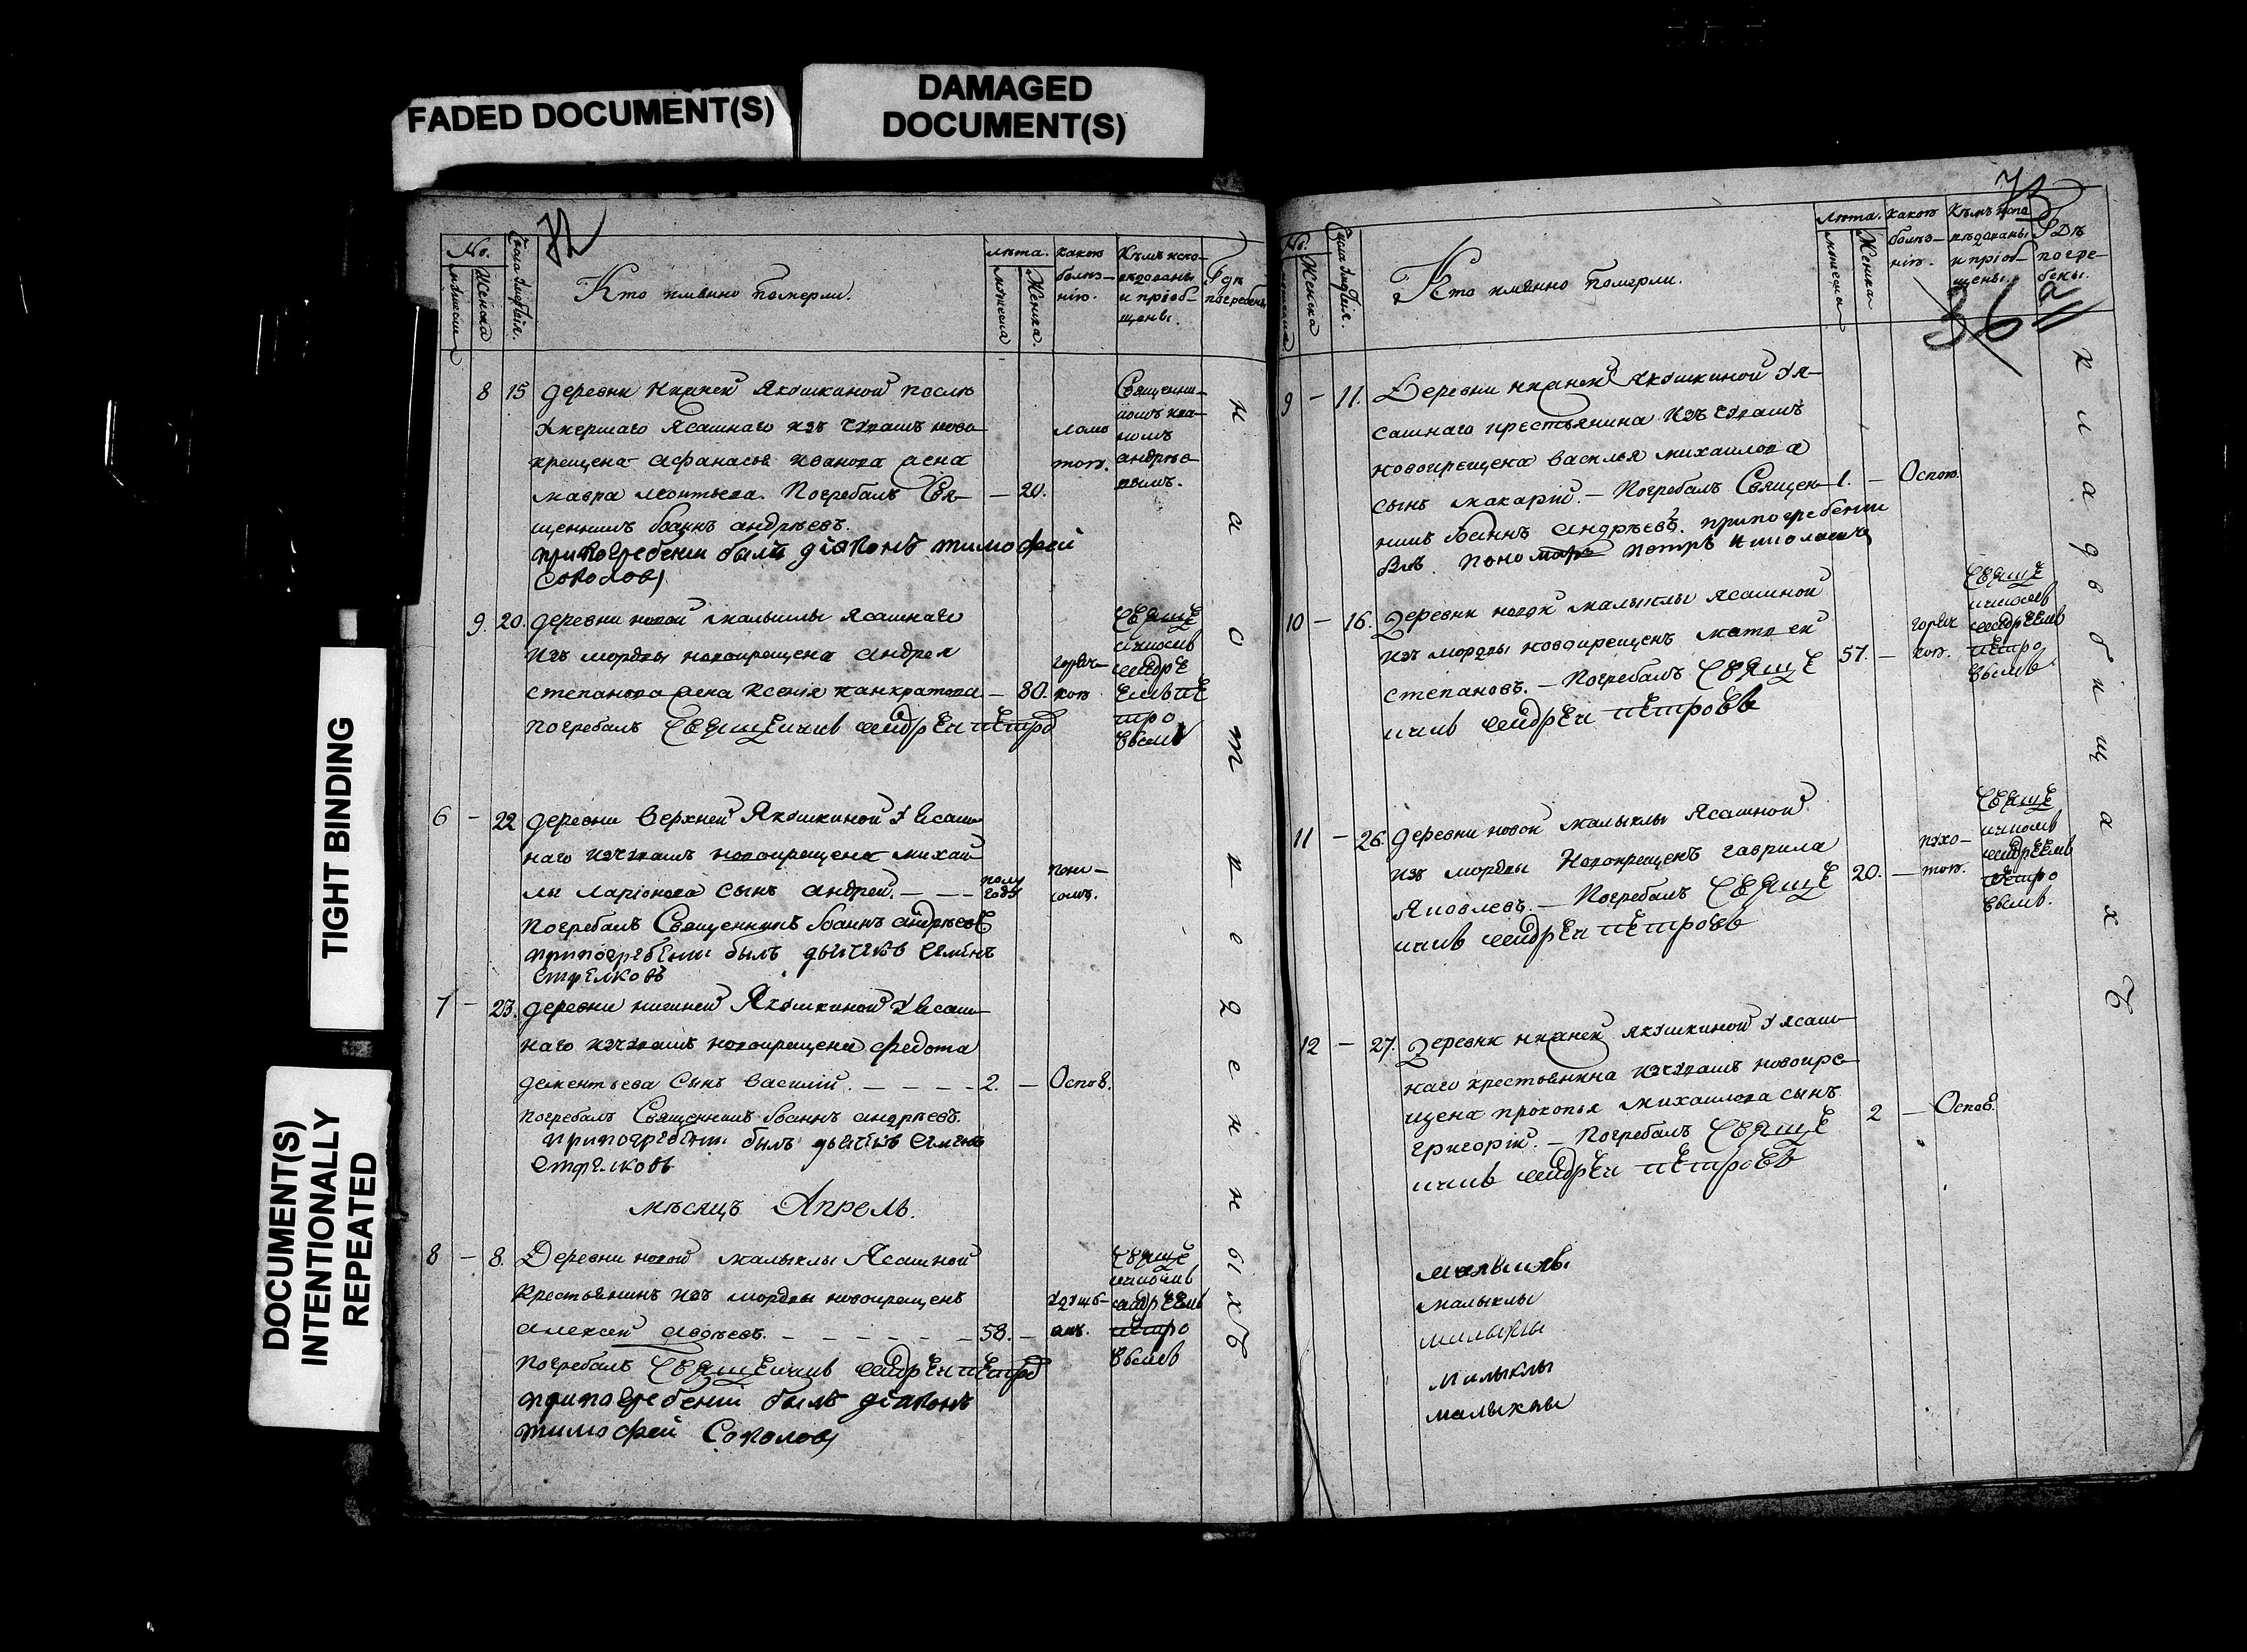 FADED DOCUMENT(S)
DAMAGED
DOCUMENT(S)
TIGHT BINDING
DOCUMENT(S)
INTENTIONALLY
REPEATED
72
№.
мужеска
Женска
Числа
Кто имянно померли.
лѣта.
мужеска
Женска.
какою
болѣз-
нію.
Кѣмъ испо-
вѣдованы
и пріоб-
щены.
Гдѣ
погребены
8 15 деревни Нижней Якушкиной послѣ
умершаго Ясашнаго изъ чувашъ ново-
крещена Афанасья Иванова жена
мавра леонтьева. Погребалъ Свя- — 20.
щенникъ Іоаннъ андрѣевъ.
при погребении былъ діаконъ тимофей
Соколовъ
ломо
тою.
Священни-
комъ Іоа-
номъ
андрѣе-
вымъ.
9. 20. деревни новой малыклы Ясашнаго
изъ мордвы новокрещена андрея
степанова жена Ксенія панкратова — 80.
погребалъ Священникъ андрей петро
горяч-
кою
Священникомъ
андреемъ
петро
вымъ
6 — 22 деревни Верхней Якушкиной у Ясаш-
наго изчувашъ новокрещена михаи-
лы Ларіонова сынъ андрей. — — — полу
году
погребалъ Священникъ Іоаннъ андрѣевъ
при погребении былъ дьячекъ семенъ
стрелковъ
поно-
сомъ.
7 — 23. деревни нижней Якушкиной у Ясаш-
наго изчувашъ новокрещена федота
дементьева сынъ василий. — — — — 2. — Оспою.
погребалъ Священникъ Іоаннъ андрѣевъ.
при погребении былъ дьячекъ семенъ
стрелковъ
мѣсяцъ Апрель.
8 — 8. Деревни новой малыклы Ясашной
крестьянинъ изъ мордвы новокрещенъ
алексей авдѣевъ. — — — — — — 58. —
погребалъ Священникъ андрей петро
при погребении былъ діаконъ
тимофей Соколовъ
удушь-
емъ.
Священникомъ
андреемъ
петро
вымъ
на отведенныхъ
73
№.
Женска
Числа
Кто имянно померли.
лѣта.
мужеска
Женска
какою
болѣз-
нію.
Кѣмъ испо
вѣдованы
и пріоб-
щены.
Гдѣ
погре-
бены.
36
9 — 11. Деревни нижней Якушкиной у Я-
сашнаго крестьянина изъ чувашъ
новокрещена василья михаилова
сынъ макарий. — Погребалъ Священ- 1. — Оспою.
никъ Іоаннъ андрѣевъ. при погребении
былъ пономарь петръ николаевъ
10 — 16. Деревни новой малыклы ясашной
изъ мордвы новокрещенъ матвей
степановъ. — Погребалъ Священ 57. —
никъ андрей петровъ
горяч
кою.
Священникомъ
андреемъ
петро
вымъ
11 — 26. деревни новой малыклы Ясашной
изъ мордвы Новокрещенъ гаврила
Яковлевъ. — Погребалъ Священ 20. —
никъ андрей петровъ
Священникомъ
андреемъ
петро
вымъ.
12 — 27. Деревни нижней якушкиной у ясаш-
наго крестьянина изчувашъ новокре-
щена прокопья михаилова сынъ
григорій. — Погребалъ Священ 2 — Оспою.
никъ андрей петровъ
малыклы
малыклы
малыклы
малыклы
малыклы
кладбищахъ